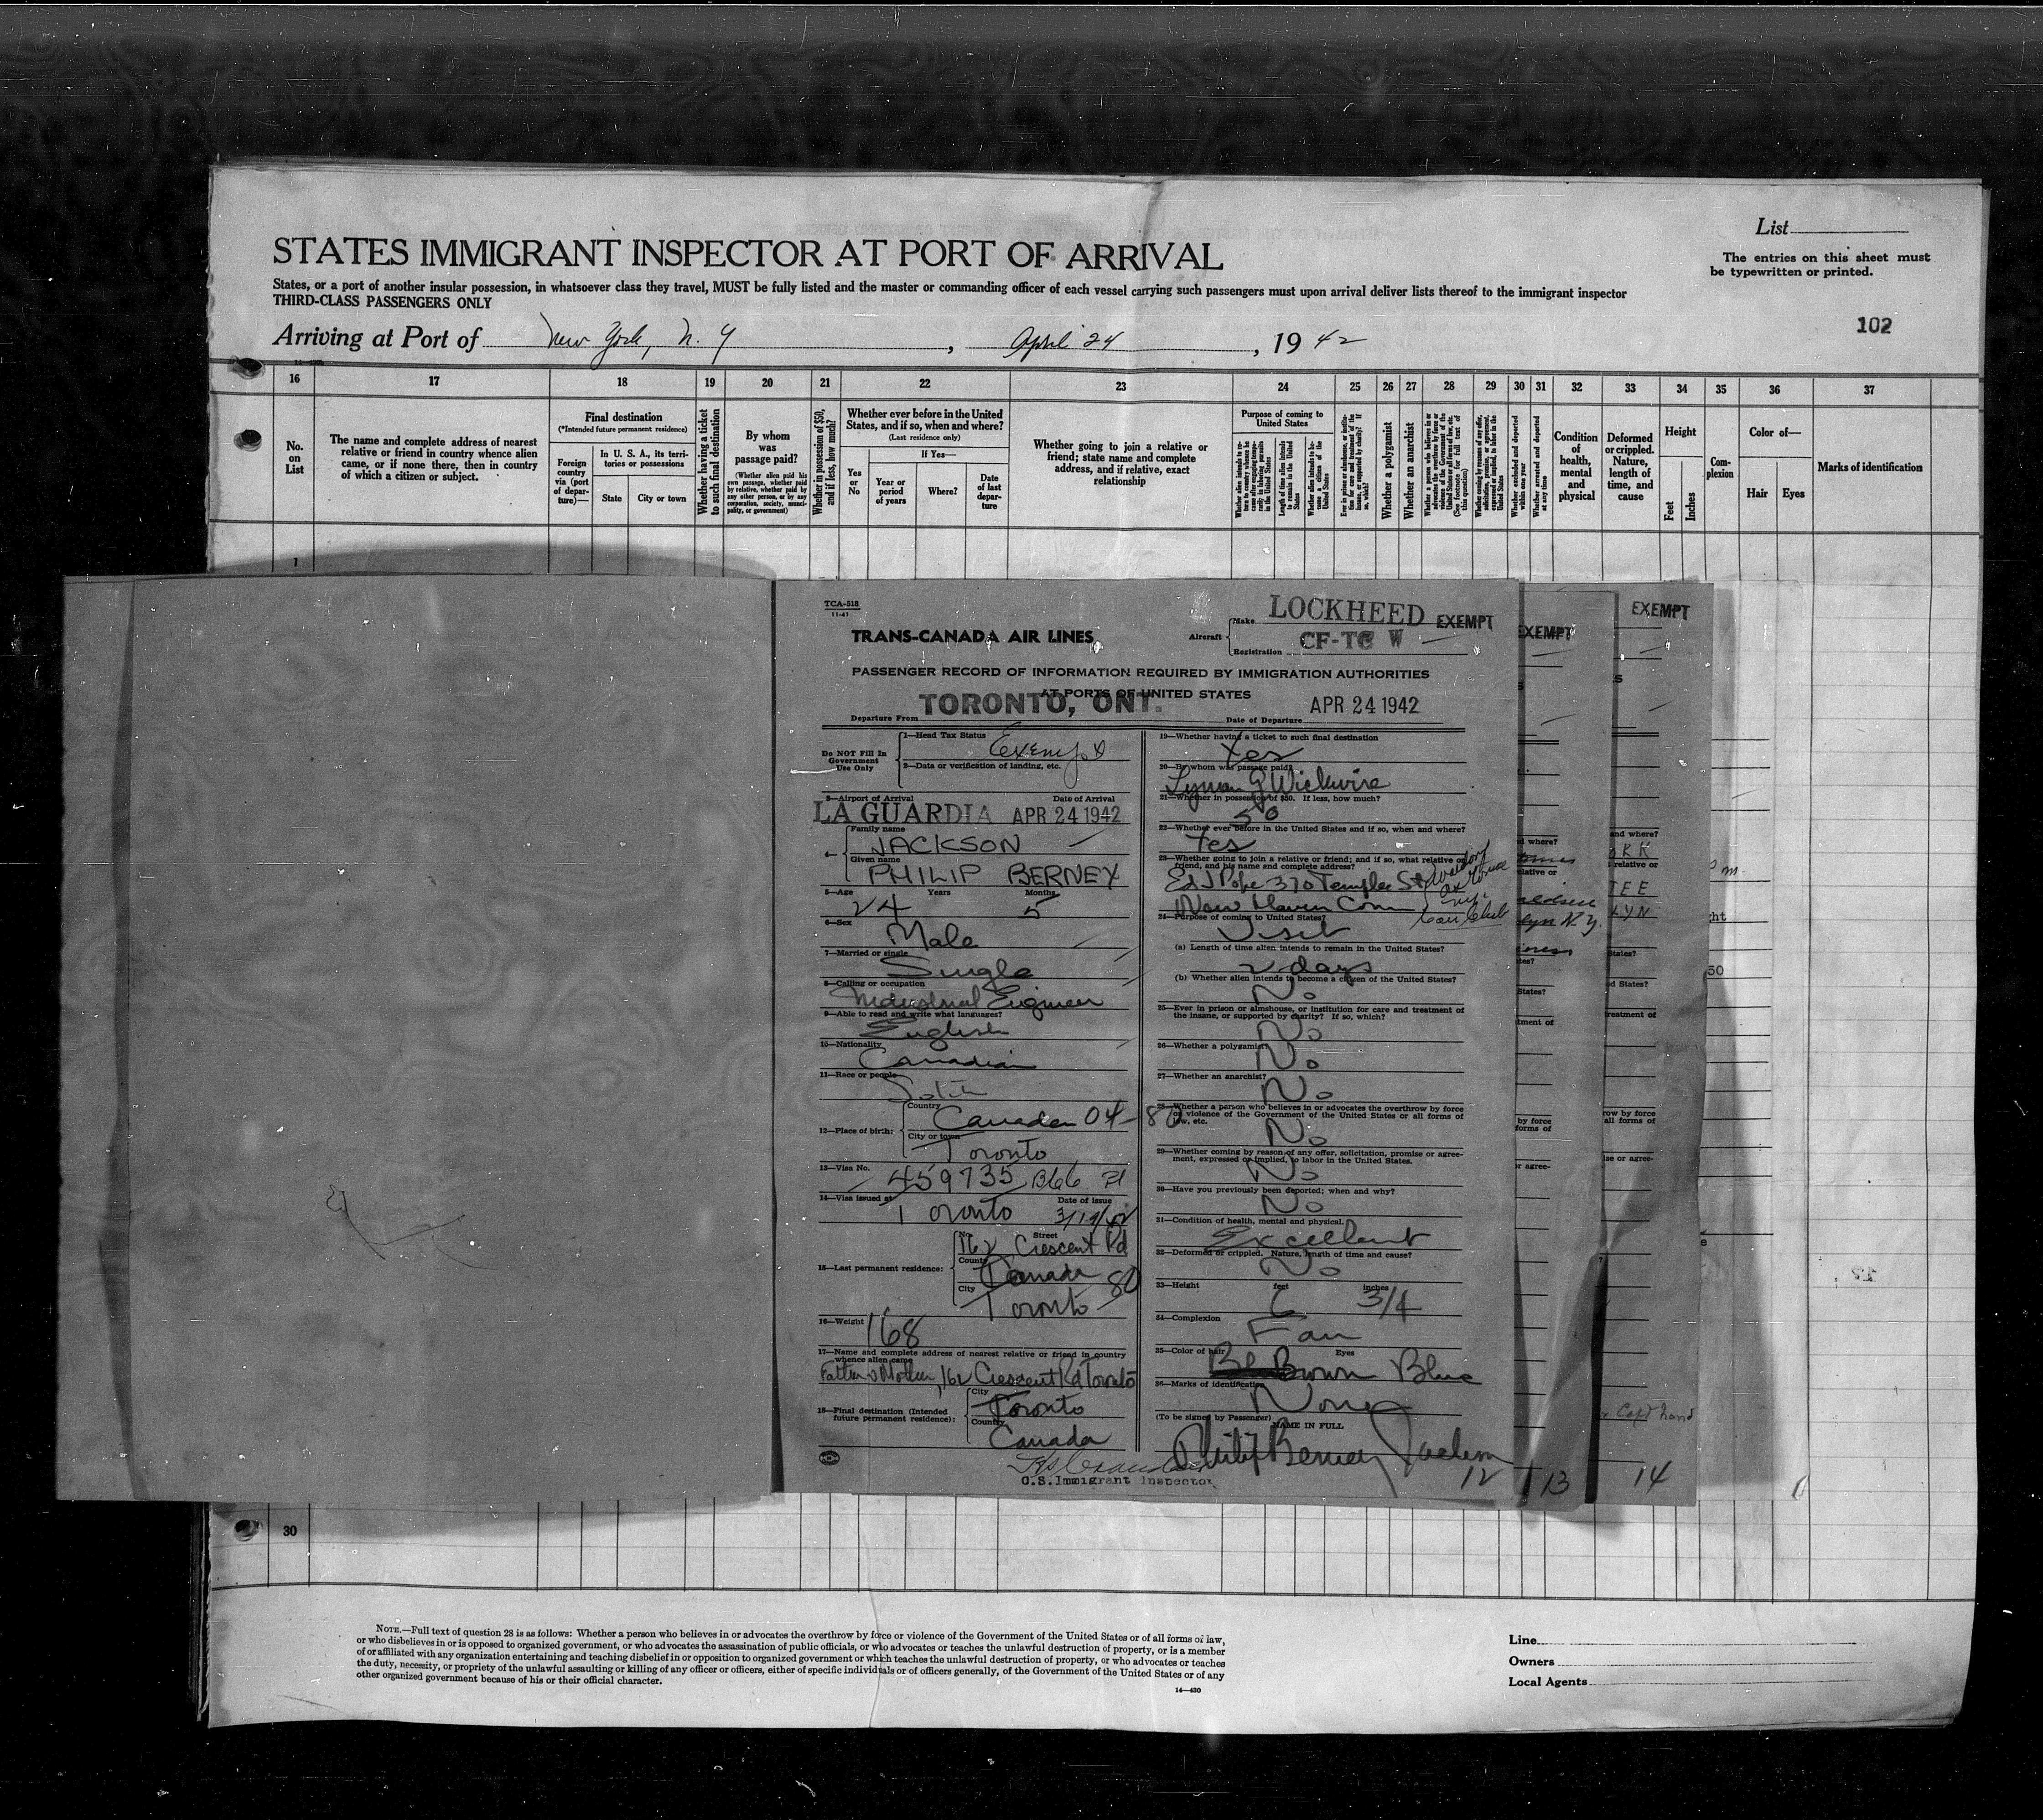 List
STATES IMMIGRANT INSPECTOR AT PORT OF ARRIVAL
The entries on this sheet must
be typewritten or printed.
States, or a port of another insular possession, in whatsoever class they travel, MUST be fully listed and the master or commanding officer of each vessel carrying such passengers must upon arrival deliver lists thereof to the immigrant inspector
THIRD-CLASS PASSENGERS ONLY
102
Arriving at Port of New York, N. Y , April 24 , 1942
16 17 18 19 20 21 22 23 24 25 26 27 28 29 30 31 32 33 34 35 36 37
No. on List
The name and complete address of nearest
relative or friend in country whence alien
came, or if none there, then in country
of which a citizen or subject.
Final destination
(*Intended future permanent residence)
Foreign country via (port of departure)—
In U. S. A., its territories or possessions
State
City or town
Whether having a ticket to such final destination
By whom was passage paid?
(Whether alien paid his own passage, whether paid by relative, whether paid by any other person, or by any corporation, society, municipality, or government)
Whether in possession of $50, and if less, how much?
Whether ever before in the United
States, and if so, when and where?
(Last residence only)
Yes or No
If Yes—
Year or period of years
Where?
Date of last departure
Whether going to join a relative or
friend; state name and complete
address, and if relative, exact
relationship
Purpose of coming to United States
Length of time alien intends to remain in the United States
Whether alien intends to become a citizen of the United States
Whether a polygamist
Whether an anarchist
Whether arrested and deported at any time
Condition of health, mental and physical
Deformed or crippled. Nature, length of time, and cause
Height
Feet
Inches
Complexion
Color of—
Hair
Eyes
Marks of identification
1
TCA-518
11-41
TRANS-CANADA AIR LINES
Aircraft
Make LOCKHEED EXEMPT
Registration CF-TC W
PASSENGER RECORD OF INFORMATION REQUIRED BY IMMIGRATION AUTHORITIES
AT PORTS OF UNITED STATES
Departure From TORONTO, ONT.
Date of Departure APR 24 1942
Do NOT Fill In
Government
Use Only
1—Head Tax Status Exempt
2—Data or verification of landing, etc.
3—Airport of Arrival Date of Arrival
LA GUARDIA APR 24 1942
4—
Family name
JACKSON
Given name
PHILIP BERNEY
5—Age Years Months
24 5
6—Sex
Male
7—Married or single
Single
8—Calling or occupation
Industrial Engineer
9—Able to read and write what languages?
English
10—Nationality
Canadian
11—Race or people
12—Place of birth:
Country
Canada 04-80
City or town
Toronto
13—Visa No.
459735 B66
14—Visa issued at Date of Issue
Toronto
15—Last permanent residence:
No. Street
162 Crescent Rd
Country
Canada 80
City
Toronto
16—Weight 168
17—Name and complete address of nearest relative or friend in country
whence alien came
Father & Mother, 162 Crescent Rd Toronto
18—Final destination (Intended
future permanent residence):
City
Toronto
Country
Canada
U.S. Immigrant Inspector
19—Whether having a ticket to such final destination
Yes
20—By whom was passage paid?
Lyman G Wickwire
21—Whether in possession of $50. If less, how much?
50
22—Whether ever before in the United States and if so, when and where?
Yes
23—Whether going to join a relative or friend; and if so, what relative or
friend, and his name and complete address?
Ed J Pope 370 Temple St
New Haven Conn
24—Purpose of coming to United States?
Visit
(a) Length of time alien intends to remain in the United States?
2 days
(b) Whether alien intends to become a citizen of the United States?
No
25—Ever in prison or almshouse, or institution for care and treatment of
the insane, or supported by charity? If so, which?
No
26—Whether a polygamist
No
27—Whether an anarchist?
No
28—Whether a person who believes in or advocates the overthrow by force
or violence of the Government of the United States or all forms of
law, etc.
No
29—Whether coming by reason of any offer, solicitation, promise or agree-
ment, expressed or implied, to labor in the United States.
No
30—Have you previously been deported; when and why?
No
31—Condition of health, mental and physical.
Excellent
32—Deformed or crippled. Nature, length of time and cause?
No
33—Height feet inches
6 3/4
34—Complexion
Fair
35—Color of hair Eyes
Brown Blue
36—Marks of identification
None
(To be signed by Passenger) NAME IN FULL
Philip Berney Jackson
12
EXEMPT
13
EXEMPT
14
30
NOTE.—Full text of question 28 is as follows: Whether a person who believes in or advocates the overthrow by force or violence of the Government of the United States or of all forms of law,
or who disbelieves in or is opposed to organized government, or who advocates the assassination of public officials, or who advocates or teaches the unlawful destruction of property, or is a member
of or affiliated with any organization entertaining and teaching disbelief in or opposition to organized government or which teaches the unlawful destruction of property, or who advocates or teaches
the duty, necessity, or propriety of the unlawful assaulting or killing of any officer or officers, either of specific individuals or of officers generally, of the Government of the United States or of any
other organized government because of his or their official character.
14—430
Line
Owners
Local Agents